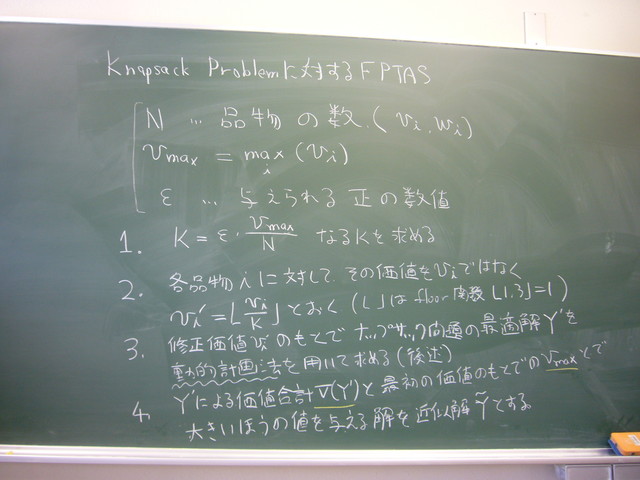 Knapsack Problemに対するFPTAS
N … 品物の数. (vi, wi)
vmax = max i (vi)
ε … 与えられる正の数値
1. K = ε・vmax/N なるKを求める
2. 各品物iに対して、その価値をviではなく
vi' = ⌊vi/K⌋とおく (⌊ ⌋は floor関数 ⌊1.3⌋=1)
3. 修正価値vi'のもとでナップサック問題の最適解Y'を
動的計画法を用いて求める(後述)
4. Y'による価値合計V(Y')と最初の価値のもとでのvmaxとで
大きいほうの値を与える解を近似解Ỹとする